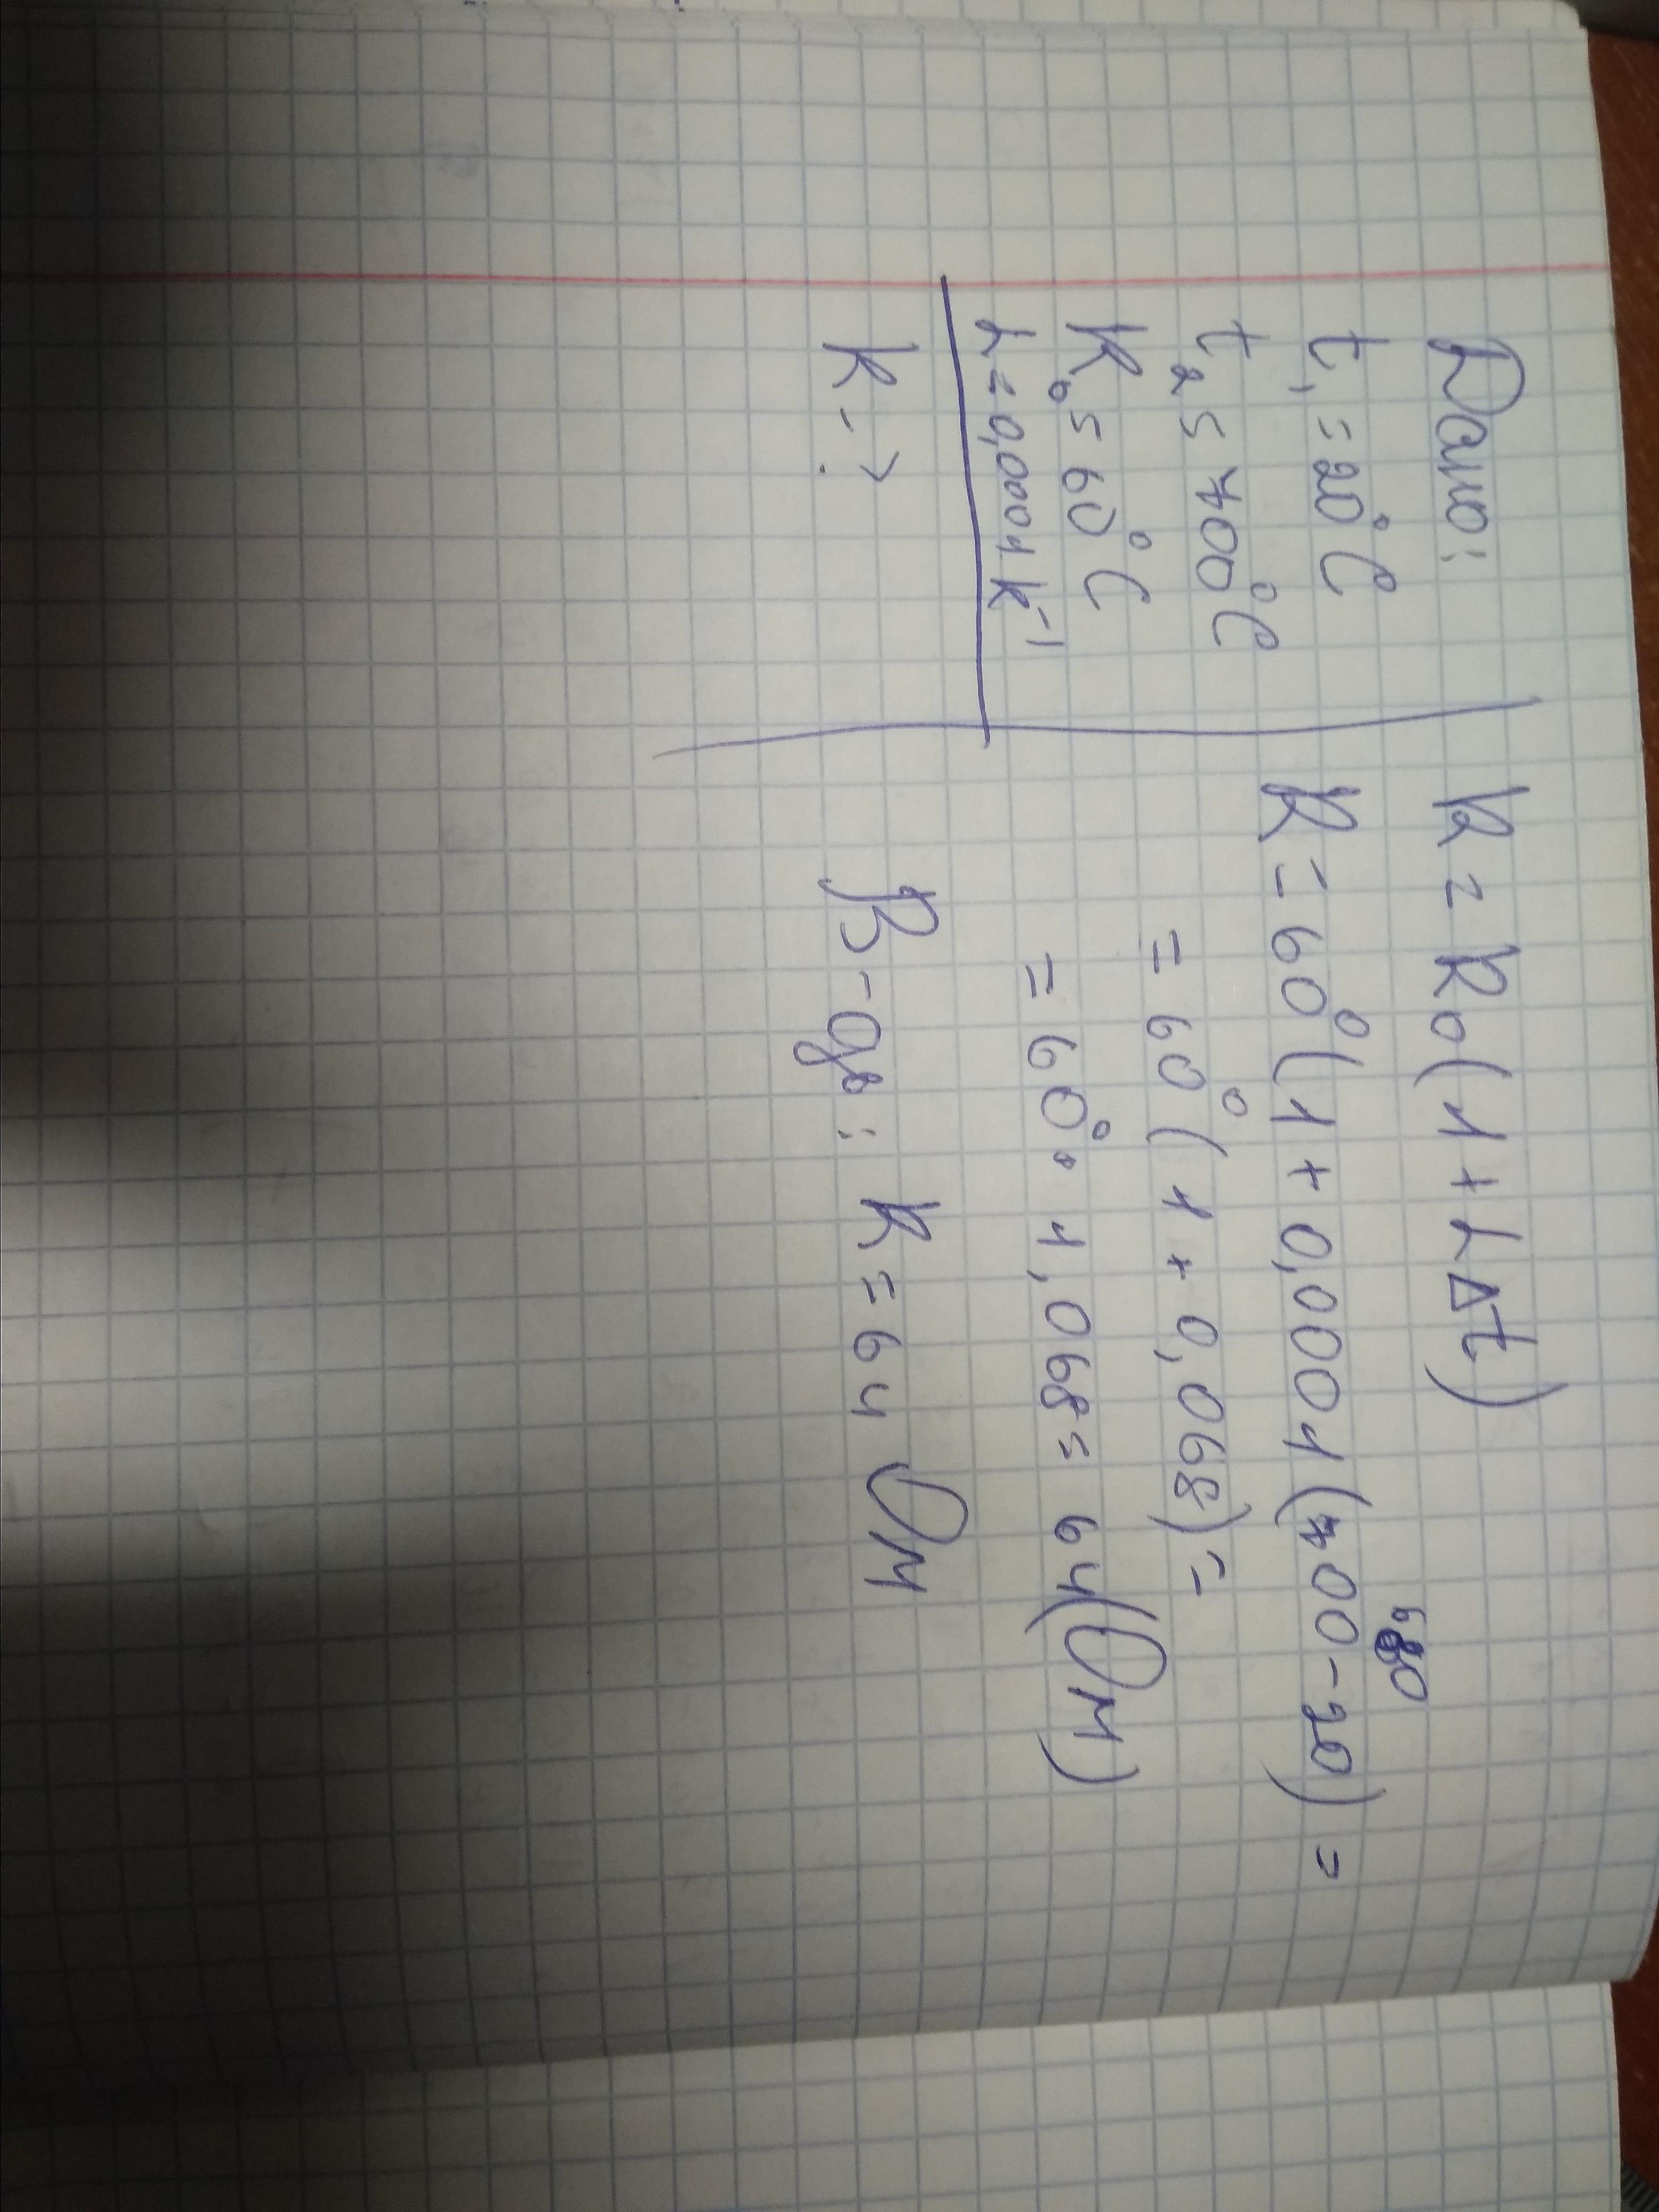 Дано:
t₁ = 20°C
t₂ = 700°C
R₀ = 60°C
α = 0,0001 K⁻¹
R - ?
R = R₀(1 + αΔt)
680
R = 60°(1 + 0,0001(700-20) =
= 60°(1 + 0,068) =
= 60° · 1,068 = 64(Ом)
В-дь: R = 64 Ом